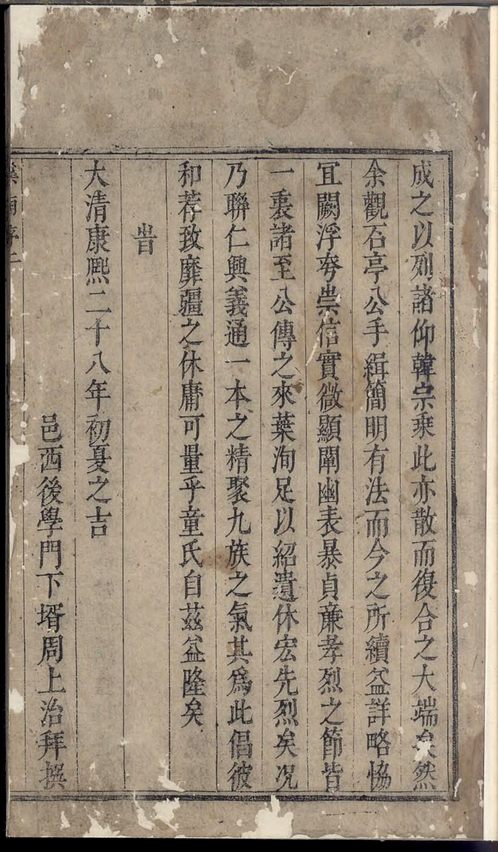 成之以列諸仰韓宗乗此亦散而復合之大端矣然
余觀石亭公手緝簡明有法而今之所續益詳略恊
冝闕浮夸崇信實微顯闡幽表暴貞亷孝烈之節皆
一裏諸至公傳之來葉洵足以紹遺休宏先烈矣况
乃聨仁興義通一本之精聚九族之氣其為此倡彼
和荐致靡疆之休庸可量乎童氏自茲益隆矣
旹
大清康熈二十八年初夏之吉
邑西後學門下壻周上治拜撰
序二